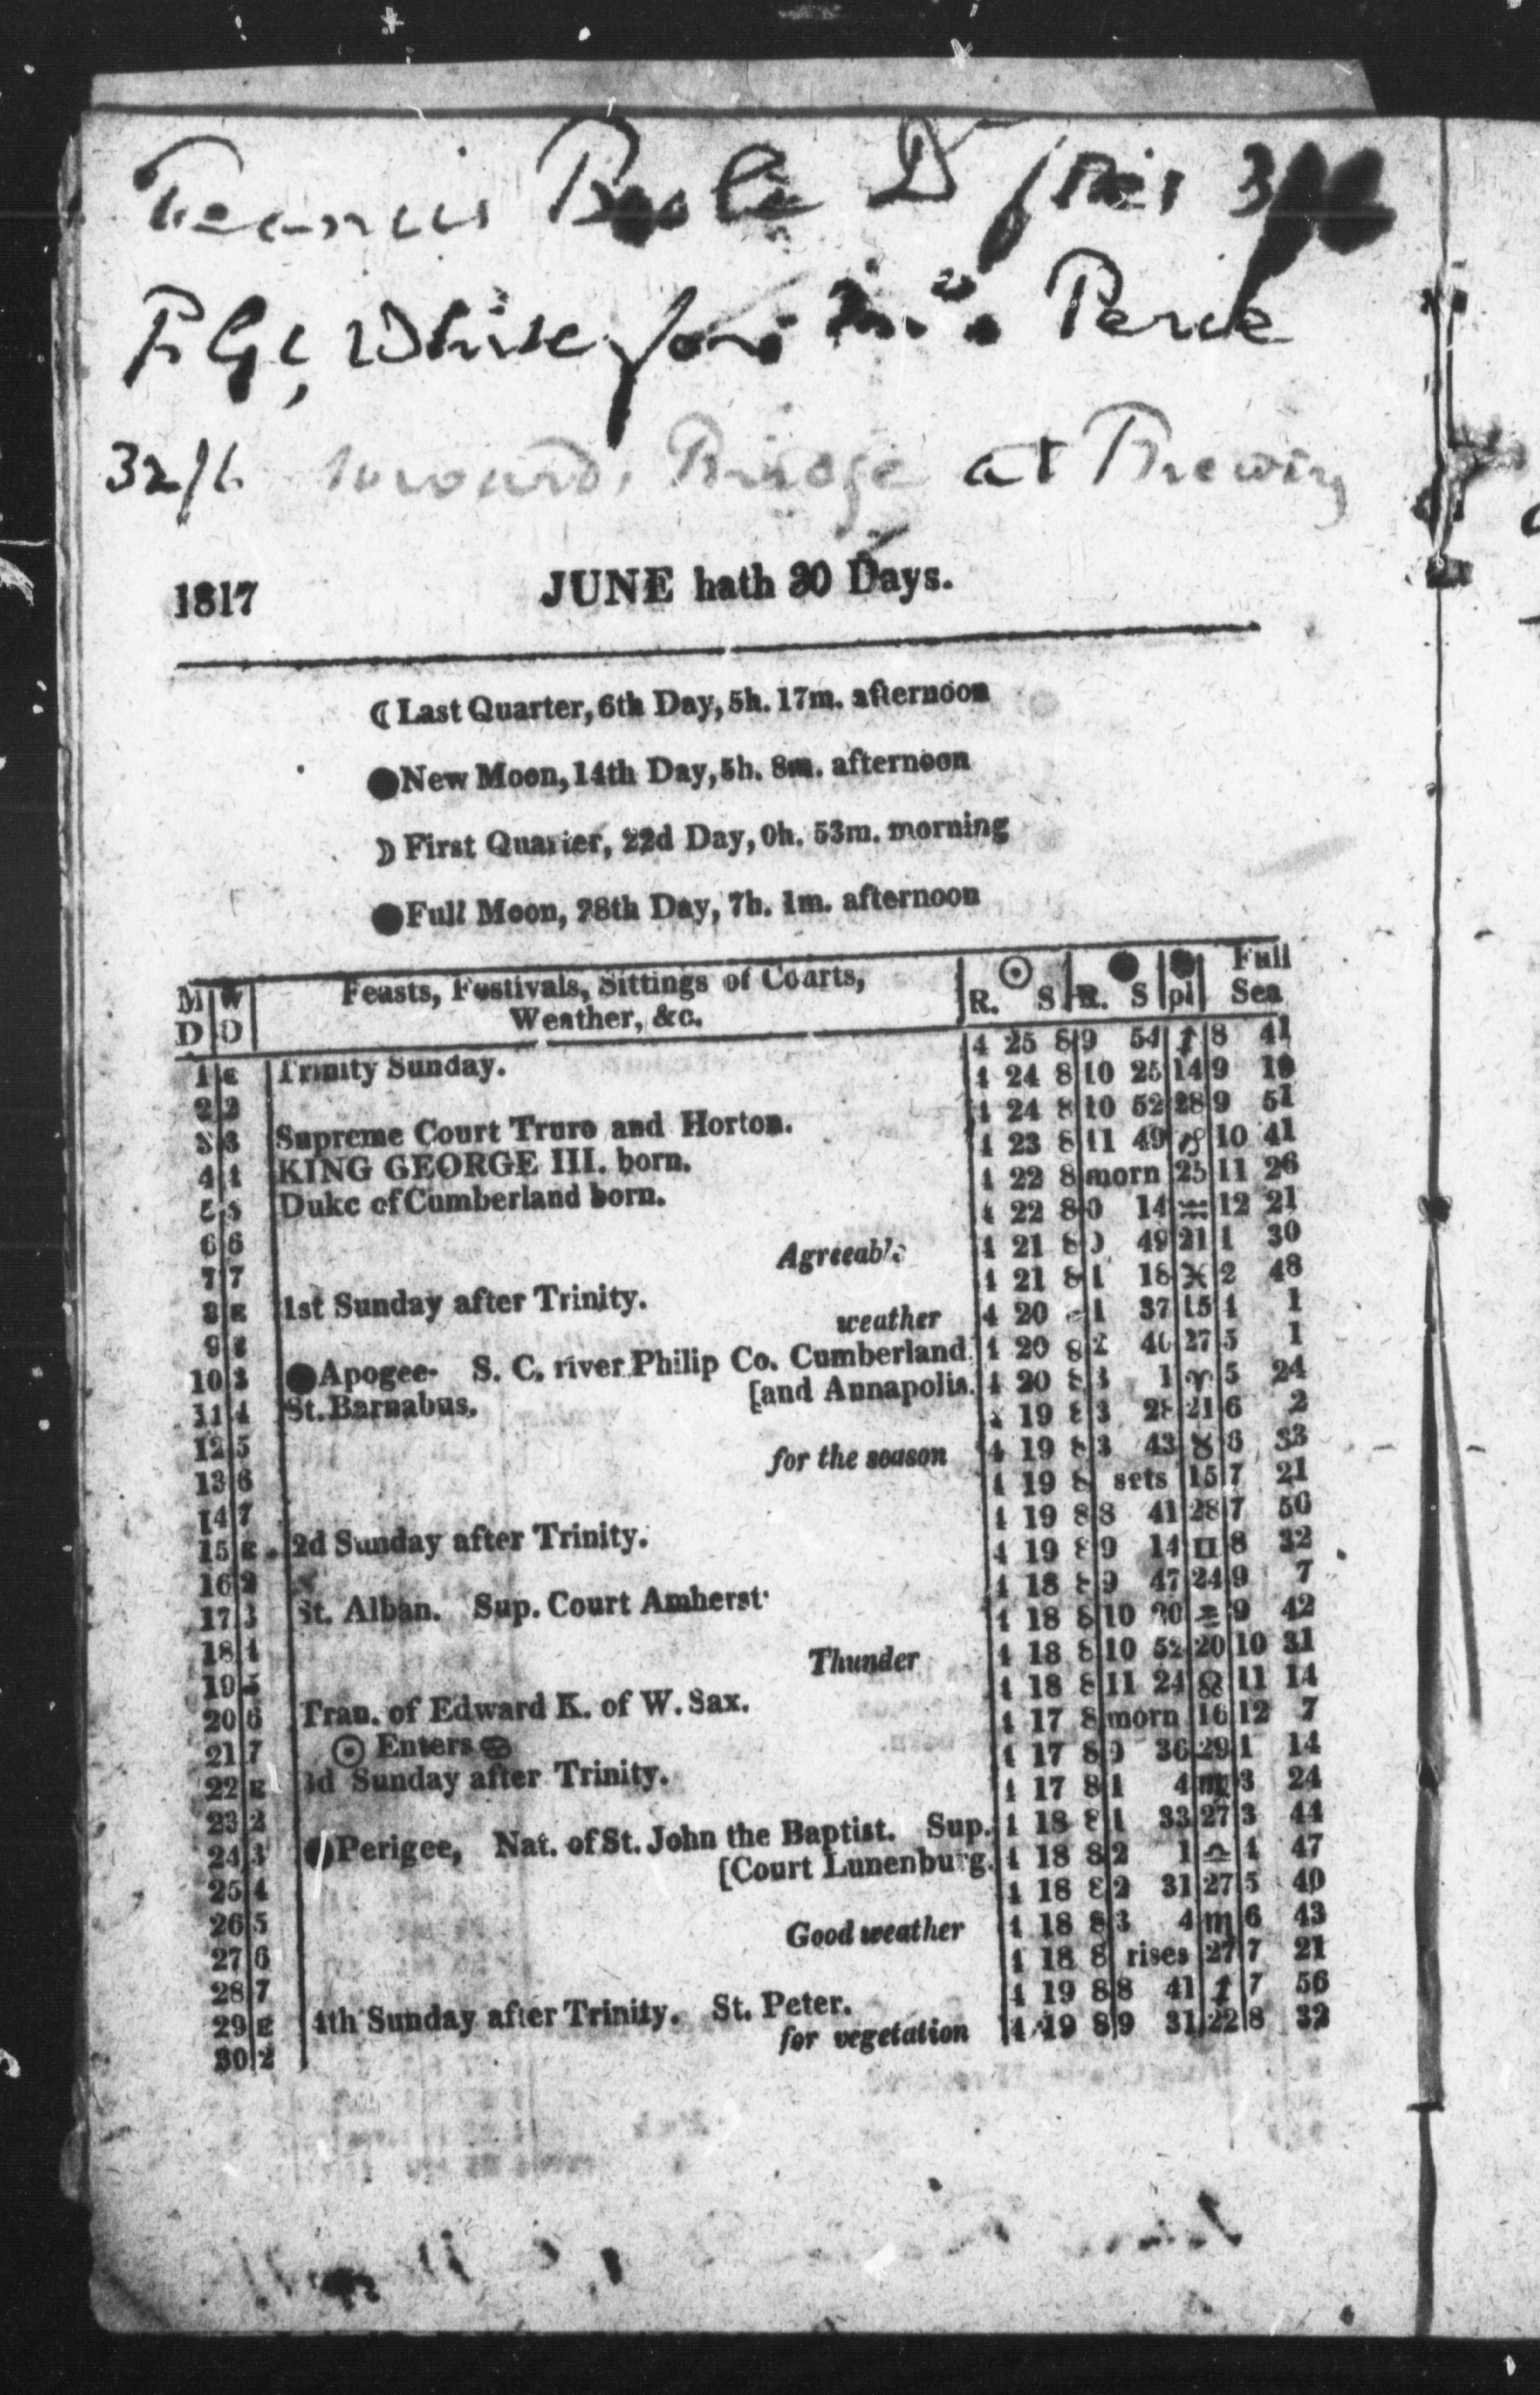 White for Perce
32/6 toward, Bridge at Brewing
1817 JUNE hath 30 Days.
☾ Last Quarter, 6th Day, 5h. 17m. afternoon
●New Moon, 14th Day, 5h. 8m. afternoon
☽ First Quarter, 22d Day, 0h. 53m. morning
●Full Moon, 28th Day, 7h. 1m. afternoon
M D W D Feasts, Festivals, Sittings of Courts, Weather, &c. R. ☉ S R. ● S ● pl Full Sea
1 E Trinity Sunday. 4 25 8 9 54 ♐ 8 41
2 2 4 24 8 10 25 14 9 19
3 3 Supreme Court Truro and Horton. 4 24 8 10 52 28 9 51
4 4 KING GEORGE III. born. 4 23 8 11 49 ♑ 10 41
5 5 Duke of Cumberland born. 4 22 8 morn 25 11 26
6 6 4 22 8 0 14 ♒ 12 21
7 7 Agreeable 4 21 8 0 49 21 1 30
8 E 1st Sunday after Trinity. 4 21 8 1 18 ♓ 2 48
9 2 weather 4 20 8 1 37 15 4 1
10 3 ●Apogee- S. C. river Philip Co. Cumberland 4 20 8 2 27 5 1
11 4 St. Barnabus. [and Annapolis. 4 20 8 3 1 ♈ 5 24
12 5 4 19 8 3 28 21 6 2
13 6 for the season 4 19 8 3 43 ♉ 6 33
14 7 4 19 8 sets 15 7 21
15 E 2d Sunday after Trinity. 4 19 8 8 41 28 7 50
16 2 4 19 8 9 14 ♊ 8 32
17 3 St. Alban. Sup. Court Amherst 4 18 8 9 47 24 9 7
18 4 4 18 8 10 20 9 42
19 5 Thunder 4 18 8 10 52 20 10 31
20 6 Tran. of Edward K. of W. Sax. 4 18 8 11 24 ♌ 11 14
21 7 ☉ Enters ♋ 4 17 8 morn 16 12 7
22 E 3d Sunday after Trinity. 4 17 8 0 36 29 1 14
23 2 4 17 8 1 4 ♍ 3 24
24 3 ●Perigee, Nat. of St. John the Baptist. Sup. 4 18 8 1 33 27 3 44
25 4 [Court Lunenburg. 4 18 8 2 1 ♎ 4 47
26 5 4 18 8 2 31 27 5 40
27 6 Good weather 4 18 8 3 4 ♏ 6 43
28 7 4 18 8 rises 27 7 21
29 E 4th Sunday after Trinity. St. Peter. 4 19 8 8 41 ♐ 7 56
30 2 for vegetation 4 19 8 9 31 22 8 32